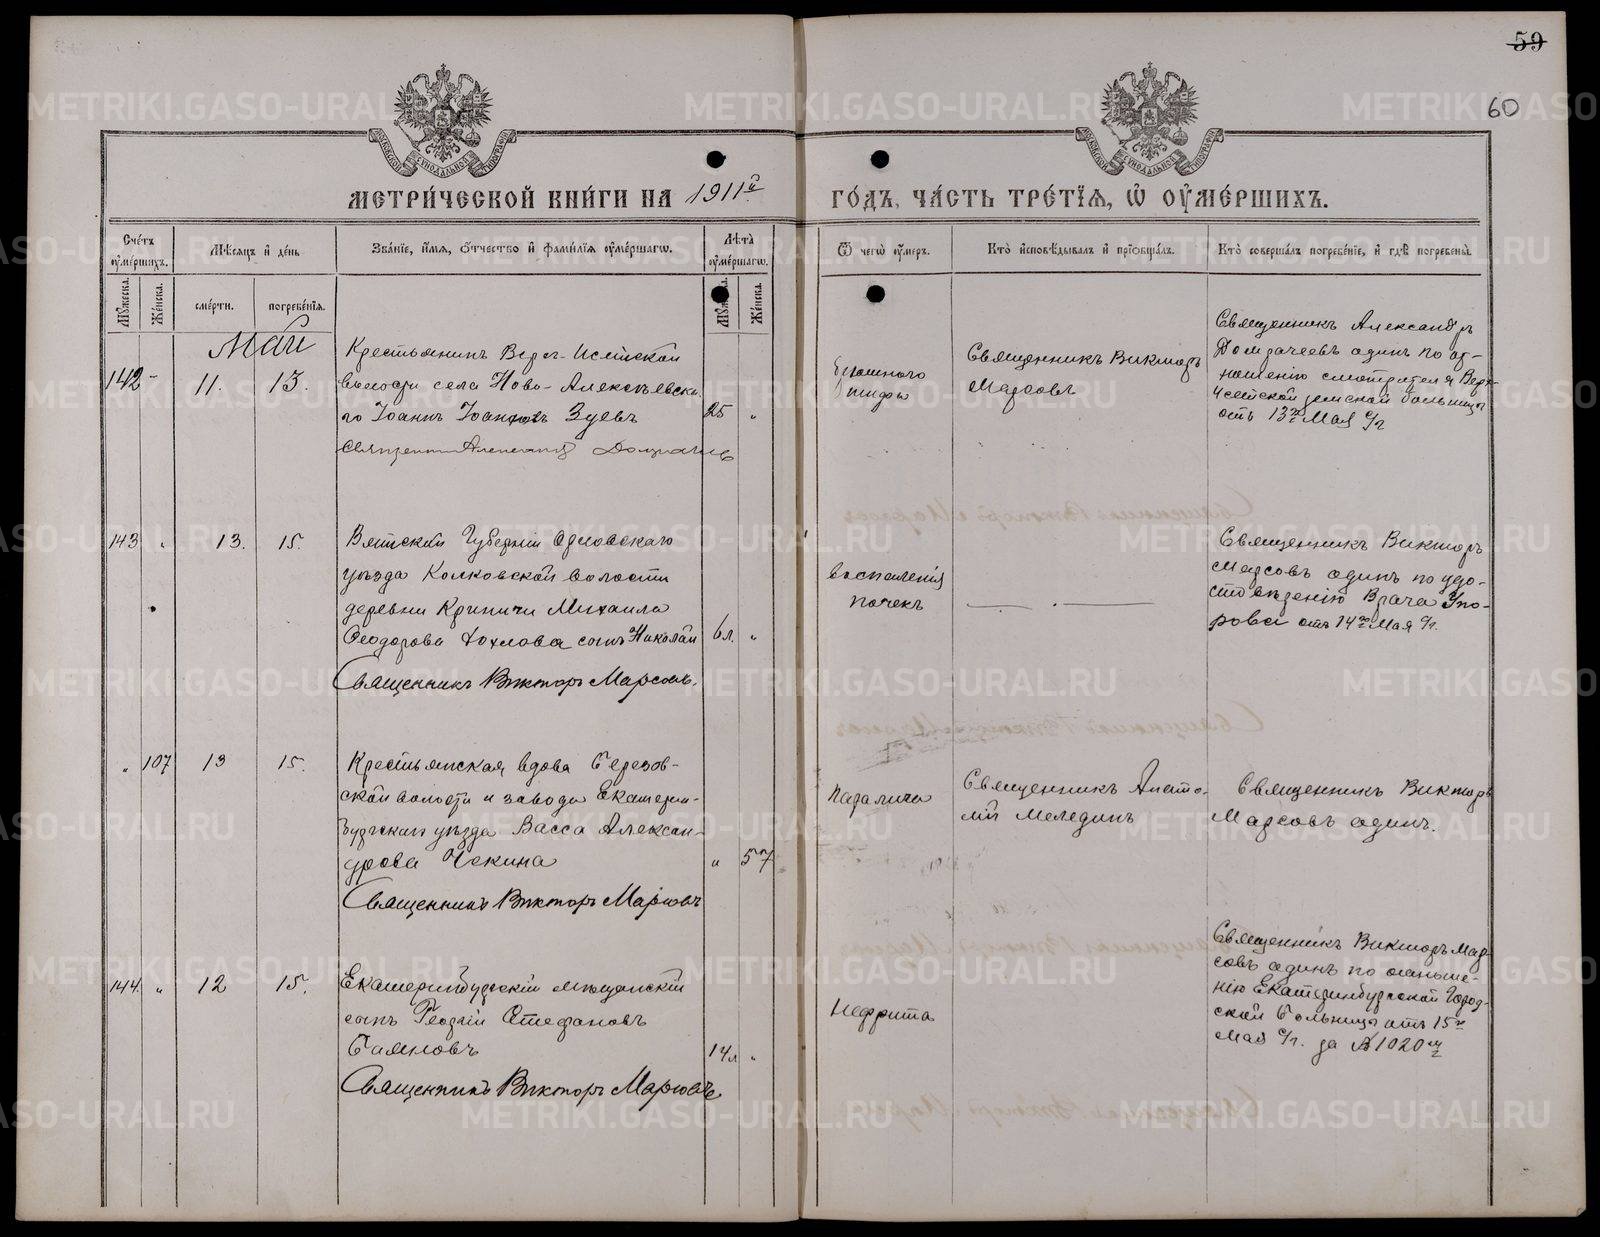 59
60
МЕТРИЧЕСКОЙ КНИГИ НА 1911й
ГОДЪ, ЧАСТЬ ТРЕТІЯ, Ѿ ОУМЕРШИХЪ.
Счетъ оумершихъ.
Мѣсяцъ и день
Званіе, имя, отчество и фамилія оумершагѡ.
Лѣта оумершагѡ.
Мужеска.
Женска.
смерти.
погребенія.
Мужеска.
Женска.
Ѿ чегѡ оумеръ.
Кто исповѣдывалъ и пріобщалъ.
Кто совершалъ погребеніе, и гдѣ погребены.
Май
142 11. 13.
Крестьянинъ Верх-Исетской
волости села Ново-Алексѣевска
го Іоаннъ Іоанновъ Зуевъ
25 "
Священникъ Александръ
брюшного
тифа
Священникъ Викторъ
Марсовъ
Священникъ Александръ
одинъ по от-
ношенію смотрителя Верх-
Исетской земской больницы
отъ 13го Мая с/г
143 " 13. 15.
Вятской Губерніи Орловскаго
уѣзда Колковской волости
деревни Криничи Михаила
Ѳеодорова сынъ Николай
6 л. "
Священникъ Викторъ Марсовъ.
воспаленія
почекъ
Священникъ Викторъ
Марсовъ одинъ по удо-
стовѣренію Врача Упо-
рова отъ 14го Мая с/г.
" 107 13 15.
Крестьянская вдова Березов-
ской волости и завода Екатерин-
бургскаго уѣзда Васса Алексан-
дрова Чекина
" 57
Священникъ Викторъ Марсовъ
паралича
Священникъ Анато-
лій Меледин
Священникъ Викторъ
Марсовъ одинъ.
144. " 12 15.
Екатеринбургскій мѣщанскій
сынъ Георгій Стефановъ
Баяновъ
14 л "
Священникъ Викторъ Марсовъ
Нефрита
Священникъ Викторъ Мар-
совъ одинъ по отноше-
нію Екатеринбургской Город-
ской больницы отъ 15го
Мая с/г. за № 1020м
METRIKI.GASO-URAL.RU